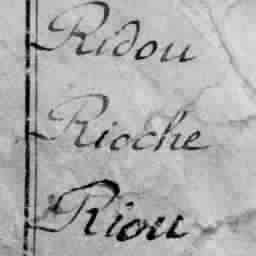 Ridou
Rioche
Riou